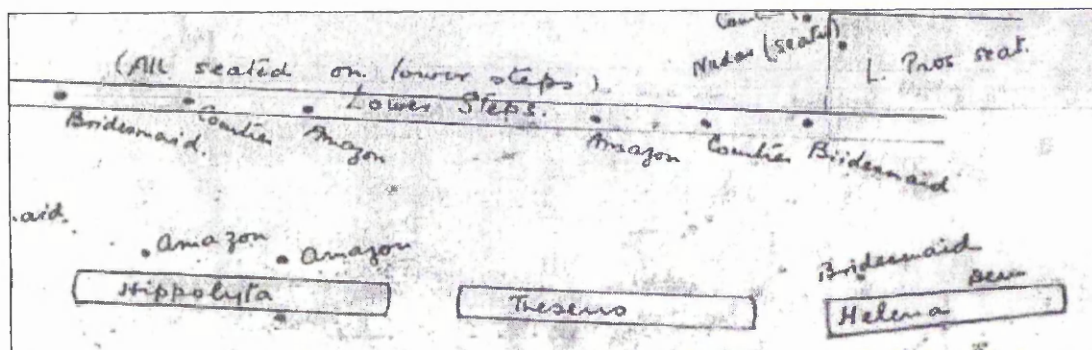 (seated)
L. Pros seat.
(All seated on lower steps)
Lower Steps.
Bridesmaid. Courtier Amazon Amazon Courtier Bridesmaid
.aid.
Amazon Amazon Bridesmaid
Hippolyta Theseus Helena